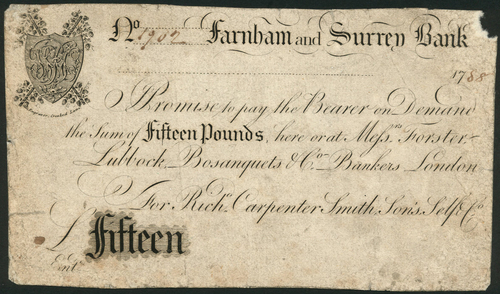 No. 1902 Farnham and Surrey Bank
1788
I Promise to pay the Bearer on Demand
the Sum of Fifteen Pounds, here or at Messrs. Forster
Lubbock, Bosanquets & Co. Bankers London
For Richd. Carpenter Smith, Son's, Self & Co.
£ Fifteen
Entd.